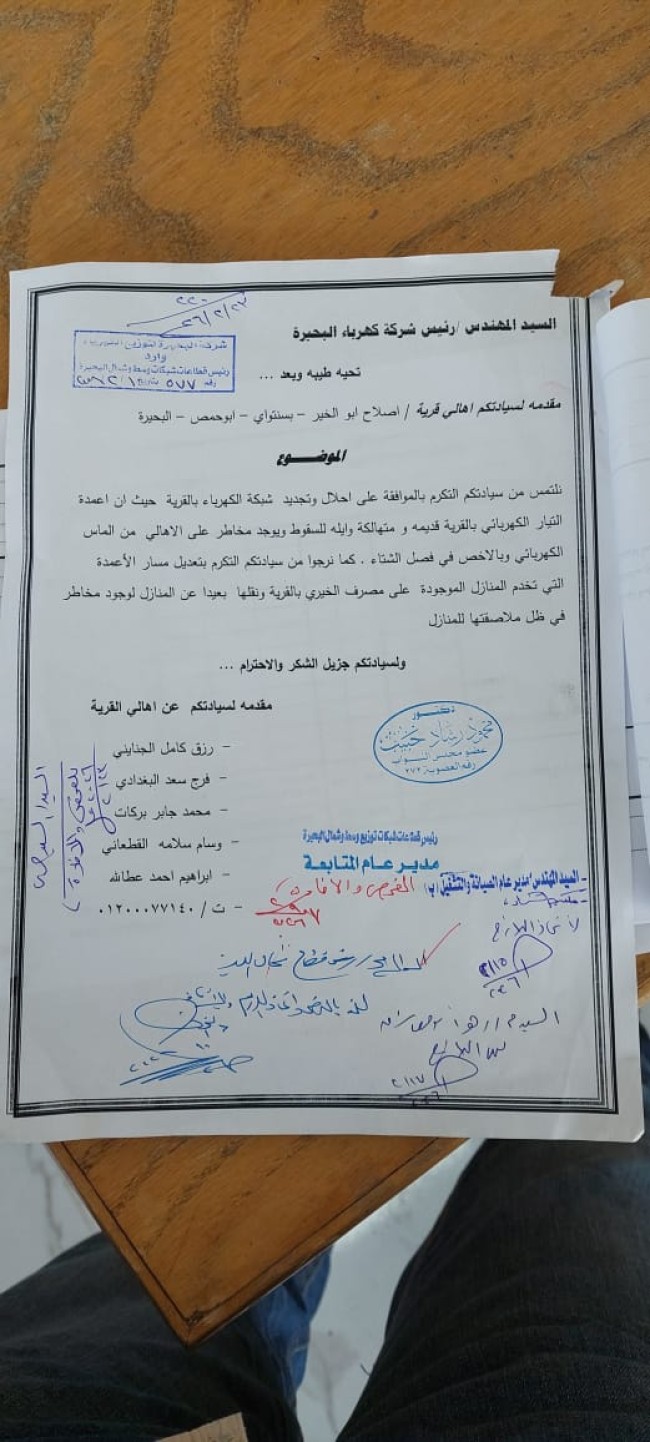 السيد المهندس /رئيس شركة كهرباء البحيرة
شركة البحيرة لتوزيع الكهرباء
وارد
رئيس قطاعات شبكات وسط وشمال البحيرة
رقم ٥٧٧ بتاريخ
تحيه طيبه وبعد ...
مقدمه لسيادتكم اهالي قرية / اصلاح ابو الخير – بسنتواي – ابوحمص – البحيرة
الموضـــــوع
نلتمس من سيادتكم التكرم بالموافقة على احلال وتجديد شبكة الكهرباء بالقرية حيث ان اعمدة
التيار الكهربائي بالقرية قديمه و متهالكة وايله للسقوط ويوجد مخاطر على الاهالي من الماس
الكهربائي وبالاخص في فصل الشتاء . كما نرجوا من سيادتكم التكرم بتعديل مسار الأعمدة
التي تخدم المنازل الموجودة على مصرف الخيري بالقرية ونقلها بعيدا عن المنازل لوجود مخاطر
في ظل ملاصقتها للمنازل
ولسيادتكم جزيل الشكر والاحترام ...
مقدمه لسيادتكم عن اهالي القرية
– رزق كامل الجنايني
– فرج سعد البغدادي
– محمد جابر بركات
– وسام سلامه القطعاني
– ابراهيم احمد عطالله
– ت / ٠١٢٠٠٠٧٧١٤٠
دكتور
محمود رشاد
عضو مجلس النواب
رقم العضوية: ٢٧٢
رئيس قطاعات شبكات توزيع وسط وشمال البحيرة
مدير عام المتابعة
- السيد المهندس/ مدير عام الصيانة والتشغيل (ب)
للفحص والافادة